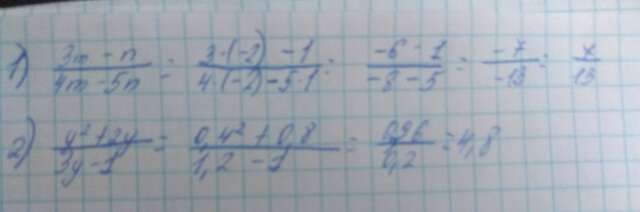 1) (3m - n)/(4m - 5n) = (3·(-2) - 1)/(4·(-2) - 5·1) = (-6 - 1)/(-8 - 5) = (-7)/(-13) = 7/13
2) (y² + 2y)/(3y - 1) = (0,4² + 0,8)/(1,2 - 1) = (0,96)/(0,2) = 4,8